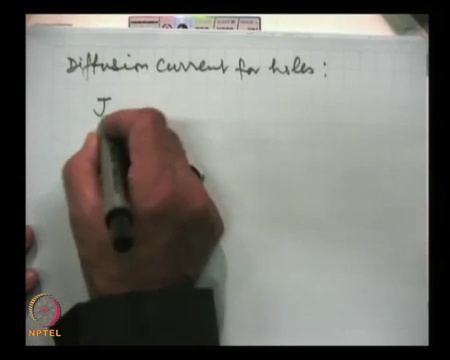 Diffusion Current for holes :
J
NPTEL